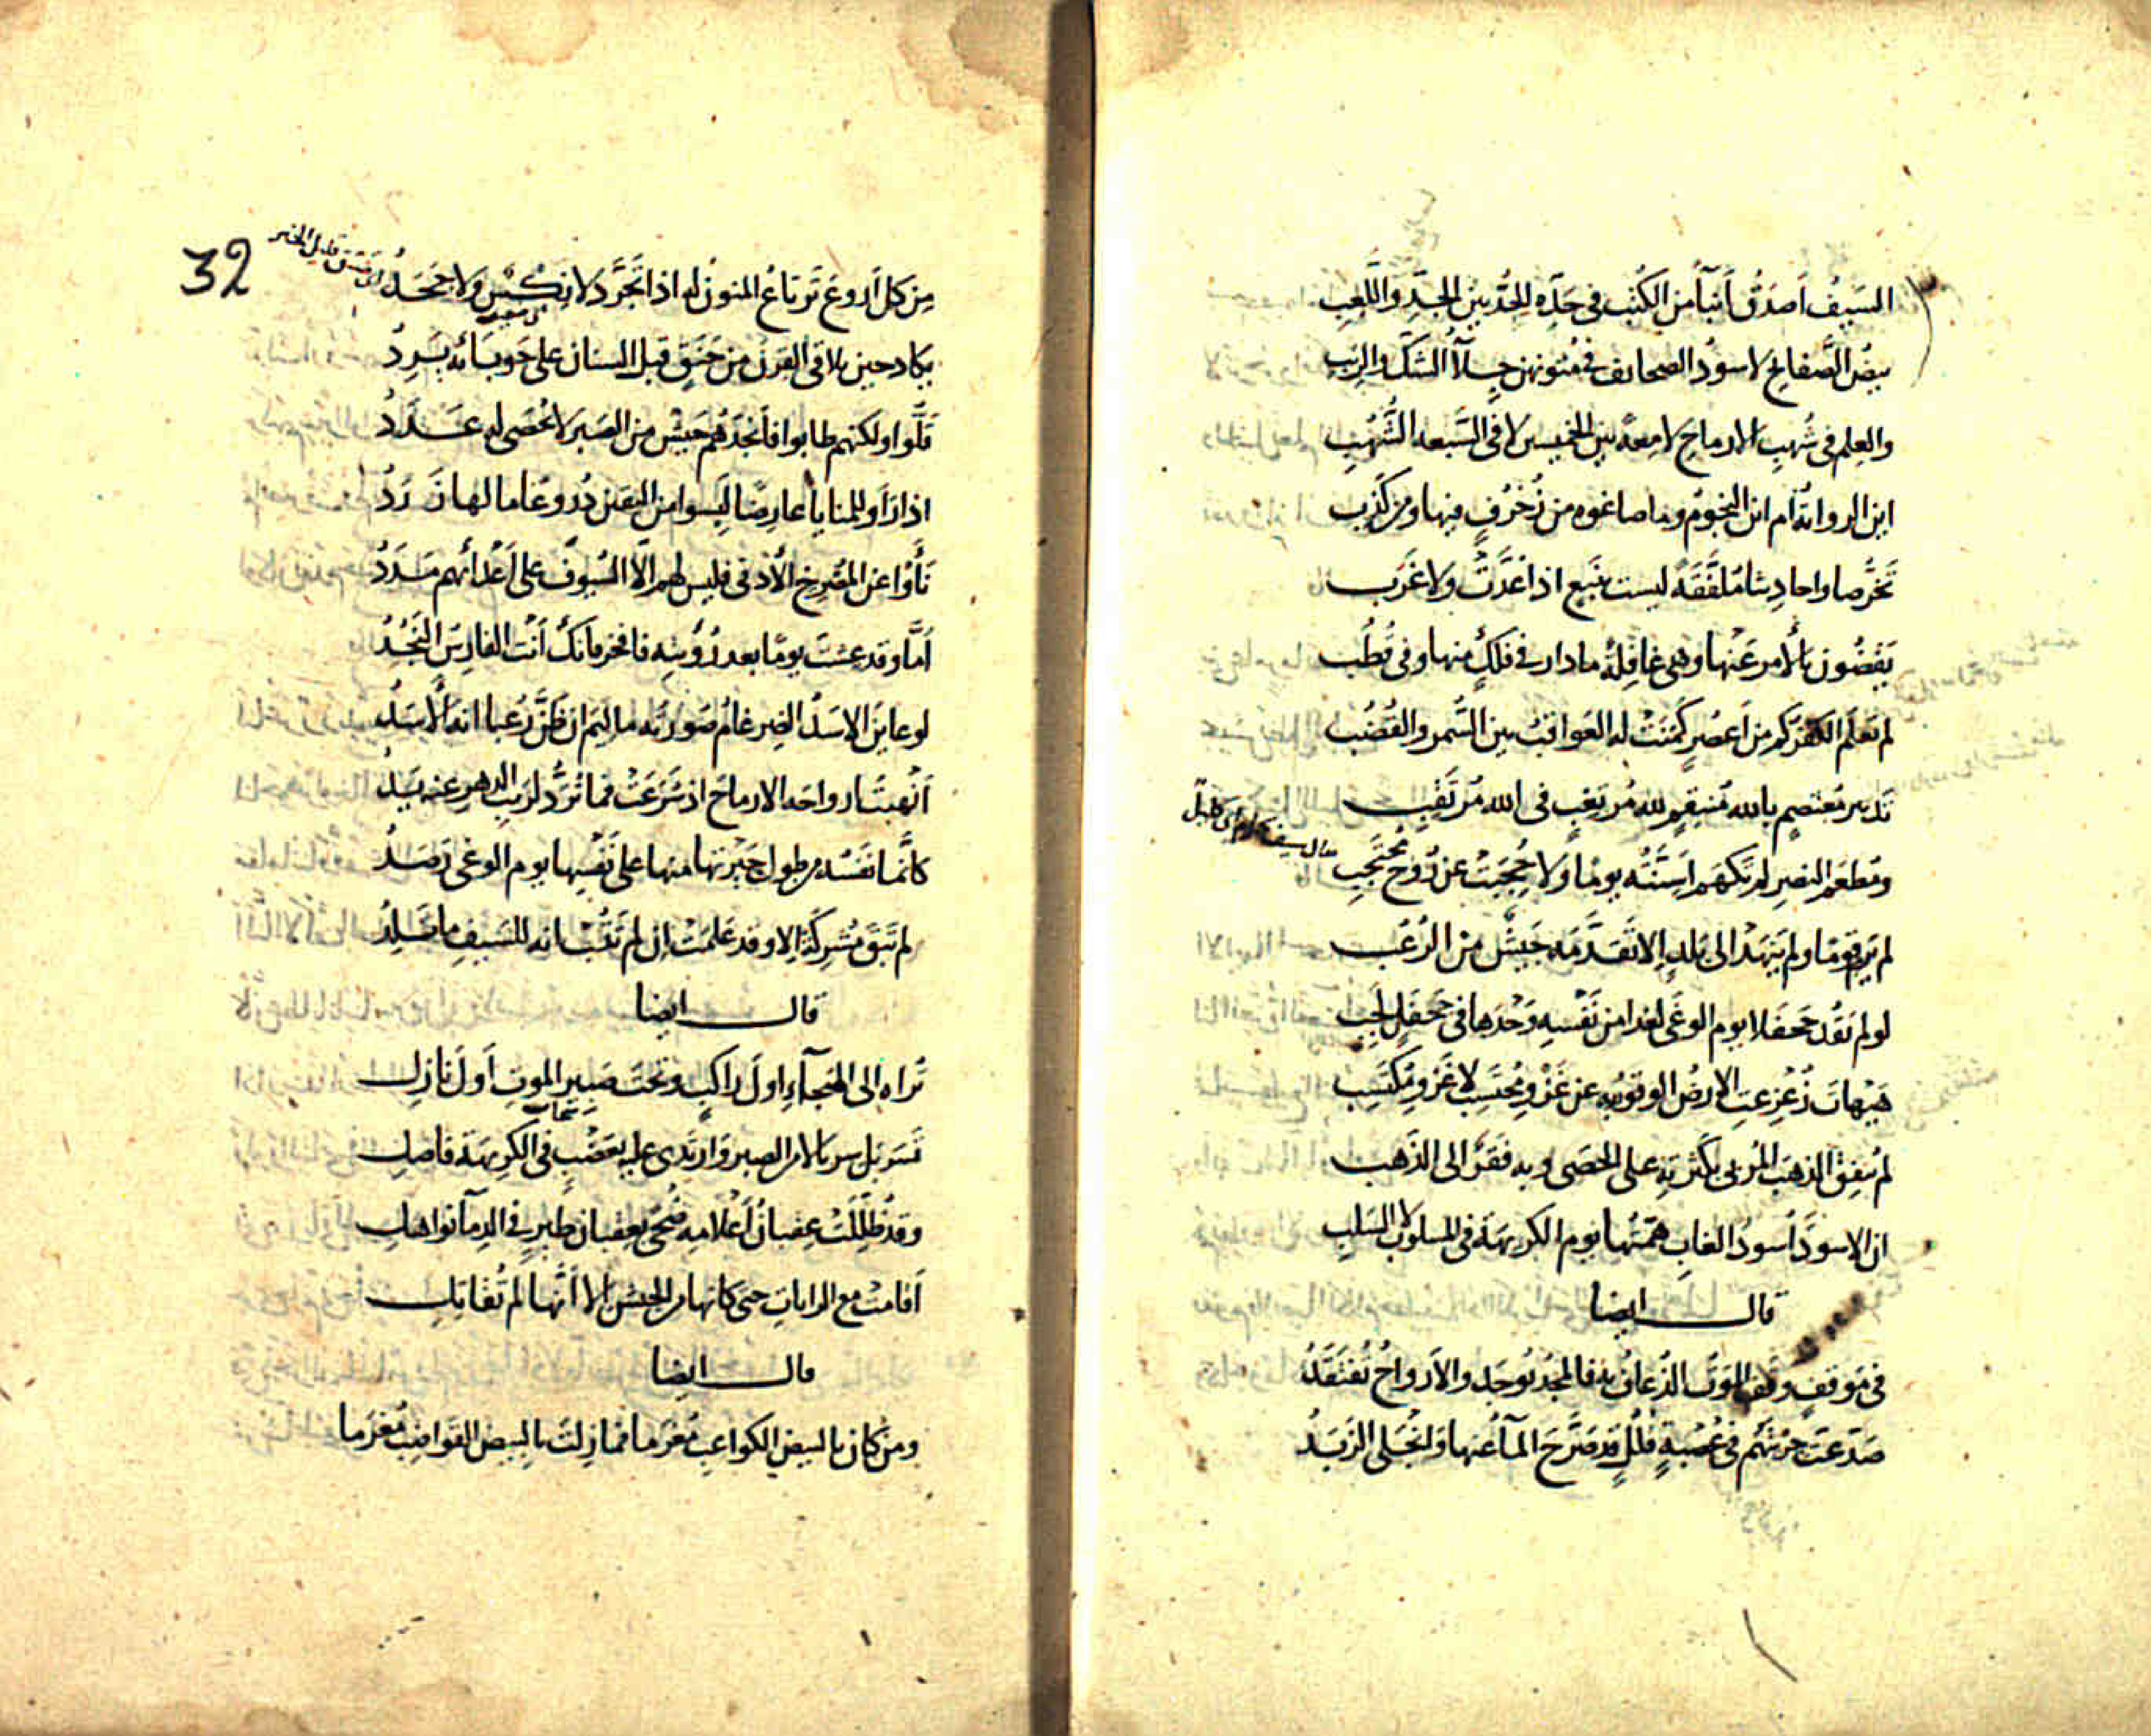 السَيفُ اَصدَقُ اَنبآءً من الكُتُبِ فى حَدِّهِ الحَدُّ بين الجِدِّ واللَّعِبِ
بيضُ الصَّفايحِ لا سودُ الصحايف فى مُتونهن جِلآءُ الشكِّ والرِيَبِ
والعِلم فى شُهبِ الارماحِ لامِعةً بين الخميسين لا فى السَّبعه الشُّهُبِ
اين الروايةُ ام اين النجومُ وما صاغوه من زُخرُفٍ فيها ومن كَذِبِ
تَخرُّصا واحاديثا مُلفَّقَةً ليست بنَبعٍ اذا عُدَّت ولا غَرَبِ
يَقضُون بالأمر عَنها وهى غافِلةٌ ما دار فى فَلكٍ منها وفى قُطُبِ
لم تعلَم الكفرُ كم من اَعصُرٍ كَمَنَتْ له العَواقبُ بين السُّمر والقُضُبِ
تدبير مُعتصِمٍ بالله مُنتقِمٍ لله مُرتغبٍ فى الله مُرتَقِبِ
ومُطعَمِ النصرِ لم تَكهَم اَسِنَّتُه يومًا ولا حُجِبَتْ عن رُوحِ مُحتَجِبِ
يقال سيف كهام اى كليلٌ
لم يَرمِ قومًا ولم يَنهَدْ الى بَلدٍ الا تقدَّمه جَيشٌ من الرُعُبِ
لو لم يَقُد جَحفلا يوم الوغى لغدا من نَفسِهِ وَحْدَها فى جَحفَلٍ لَجِبِ
هَيهات زُعزِعتِ الارضُ الوقورُ به عن غَزْوِ مُحتَسِبٍ لا غَزوِ مكتَسِبِ
لم يُنفِق الذهب المُربى بكَثرتِهِ على الحَصى وبه فَقرٌ الى الذهبِ
ان الاسودَ اُسودَ الغابِ همَّتُها يوم الكريهَة فى المسلوبِ لا السَلَبِ
قال ايضا
فى مَوقفٍ وقف المَوتُ الذُعافُ به فالمجدُ يُوجَد والارواحُ تُفتَقَدُ
صَدعتَ جِريتَهم فى عُصبَةٍ قُلُلٍ قد صَرَّحَ المآءُ عنها وانجَلى الزَبَدُ
32
مِن كل اَروعَ تَرتاعُ المنونُ له اذا تَجَرَّد لا نِكسٍ ولا جَحِدُ
اى ضيق قليل الخير
يكاد حين يلاقى القِرنَ من حَنَقٍ قبل السنان على حَوبائه يَرِدُ
قَلُّوا ولكنهم طابوا فأَنجَدَهُم جَيشٌ من الصَبر لا يُحصى له عَددُ
اذا رَاَوا للمنايا عارضًا لَبِسوا من اليقين دُروعًا ما لها زَرَدُ
نَأَوْا عن المُصرِخ الأدنى فليس لهم الّا السُيوفَ على أعدائهم مَدَدُ
أمَّا وقد عِشتَ يومًا بعد رُؤيتِه فافخر فانك أنت الفارسُ النَجُدُ
لو عاين الاسَدُ الضِرغامُ صورَتَه ما لِيمَ ان ظَنَّ رُعبًا انه الاسَدُ
اَنهَبتَ ارواحه الارماحَ اذ شَرَعَتْ فما تُرَدُّ لرَيبِ الدهر عنه يَدُ
كانَّما نَفسُه من طول حَيرتها منها على نَفسِها يوم الوغى رَصَدُ
لم تَبقَ مُشرِكَةٌ الا وقد عَلِمَتْ ان لم تَتُب انه للسَيفِ ما تَلِدُ
قال ايضا
تَراه الى الهيجآءِ اولَ راكبٍ وتحت صَبيرِ الموتِ اَولَ نازلِ
سَحاب
تَسَربَلَ سِربالا من الصبر وَارتَدى عليه بعَضْبٍ فى الكريهَة فاصلِ
وقد ظُلِّلَت عِقبانُ اَعلامِه ضُحًى بعِقبانِ طيرٍ فى الدِمآءِ نواهلِ
اَقامت مع الرايات حتى كانها من الجيش الا اَنَّها لم تُقاتلِ
قال ايضا
ومن كان بالبيض الكواعبِ مُغرَما فما زلتَ بالبيض القواضبِ مُغرَما